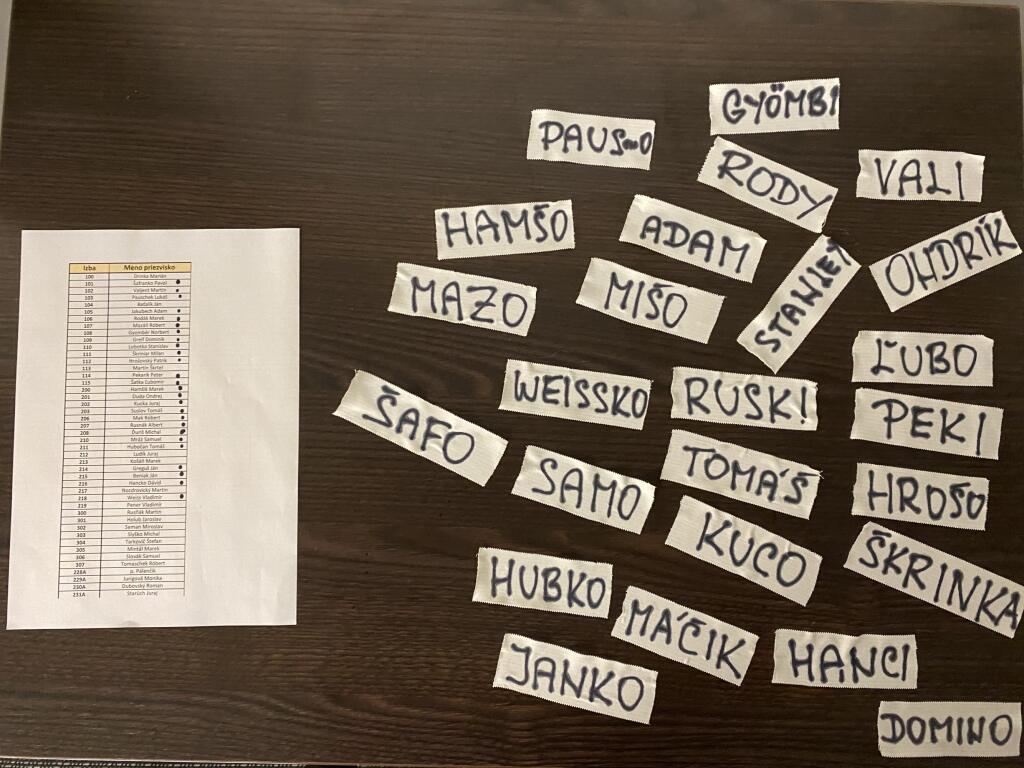 Izba Meno priezvisko
100 Drinka Marián
101 Šafranko Pavol
102 Valjent Martin
103 Pauschek Lukáš
104 Rafalik Ján
105 Jakubech Adam
106 Rodák Marek
107 Mazáň Róbert
108 Gyombér Norbert
109 Greif Dominik
110 Lobotka Stanislav
111 Škriniar Milan
112 Hrošovský Patrik
113 Martin Škrtel
114 Pekarik Peter
115 Šatka Ľubomír
200 Hamšík Marek
201 Duda Ondrej
202 Kucka Juraj
203 Suslov Tomáš
206 Mak Róbert
207 Rusnák Albert
208 Ďuriš Michal
210 Mráz Samuel
211 Hubočan Tomáš
212 Ludík Juraj
213 Košáň Marek
214 Greguš Ján
215 Beniak Ján
216 Hancko Dávid
217 Nozdrovický Martin
218 Weiss Vladimír
219 Pener Vladimír
300 Rusňák Martin
301 Holub Jaroslav
302 Seman Miroslav
303 Slyško Michal
304 Tarkovič Štefan
305 Mintál Marek
306 Slovák Samuel
307 Tomaschek Róbert
228A p. Pálenčík
229A Jurigová Monika
230A Dubovský Roman
231A Starúch Juraj
GYÖMBI
PAUS~O
RODY
VALI
HAMŠO
ADAM
ONDRÍK
MAZO
MIŠO
STANLEY
ĽUBO
WEISSKO
RUSKI
PEKI
ŠAFO
SAMO
TOMÁŠ
HROŠO
KUCO
ŠKRINKA
HUBKO
MÁČIK
HANCI
JANKO
DOMINO